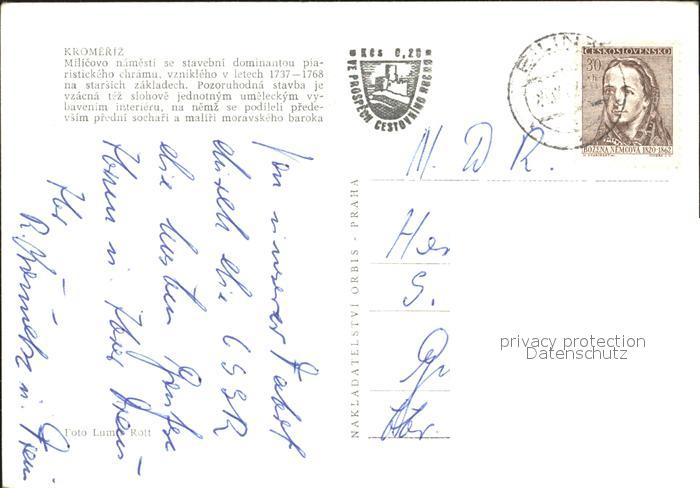 KROMĚŘÍŽ
Miličovo náměstí se stavební dominantou pia-
ristického chrámu, vzniklého v letech 1737—1768
na starších základech. Pozoruhodná stavba je
vzácná též slohově jednotným uměleckým vy-
bavením interiéru, na němž se podíleli přede-
vším přední sochaři a malíři moravského baroka
Kčs 0,20
VE PROSPĚCH CESTOVNÍHO RUCHU
ČESKOSLOVENSKO
30
BOŽENA NĚMCOVÁ 1820-1862
NAKLADATELSTVÍ ORBIS - PRAHA
Von unserer Fahrt
durch die ČSSR
die besten Grüsse
Ihnen u. Ihrer Frau
Ihr
R.
u. Frau
N. D. R.
Her
G.
privacy protection
Datenschutz
Foto Lumír Rott